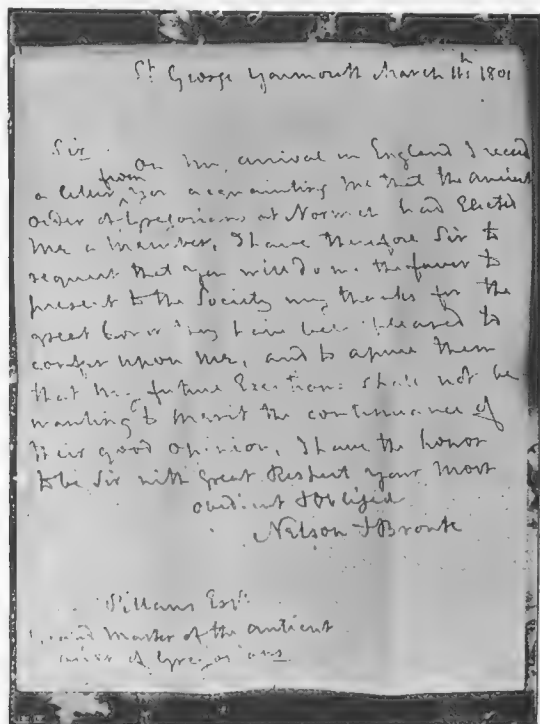 St George Yarmouth March 11th 1801
Sir
On my arrival in England I recd
from
a letter you acquainting me that the antient
order of Gregorians at Norwich had Elected
me a member, I have therefore Sir to
request that you will do me the favor to
present to the Society my thanks for the
great honor they have been pleased to
confer upon me, and to assure them
that my future Exertions shall not be
wanting to merit the continuance of
their good opinion, I have the honor
to be Sir with Great Respect your most
obedient & obliged
Nelson & Bronte
Esqr
Master of the antient
order of Gregorians